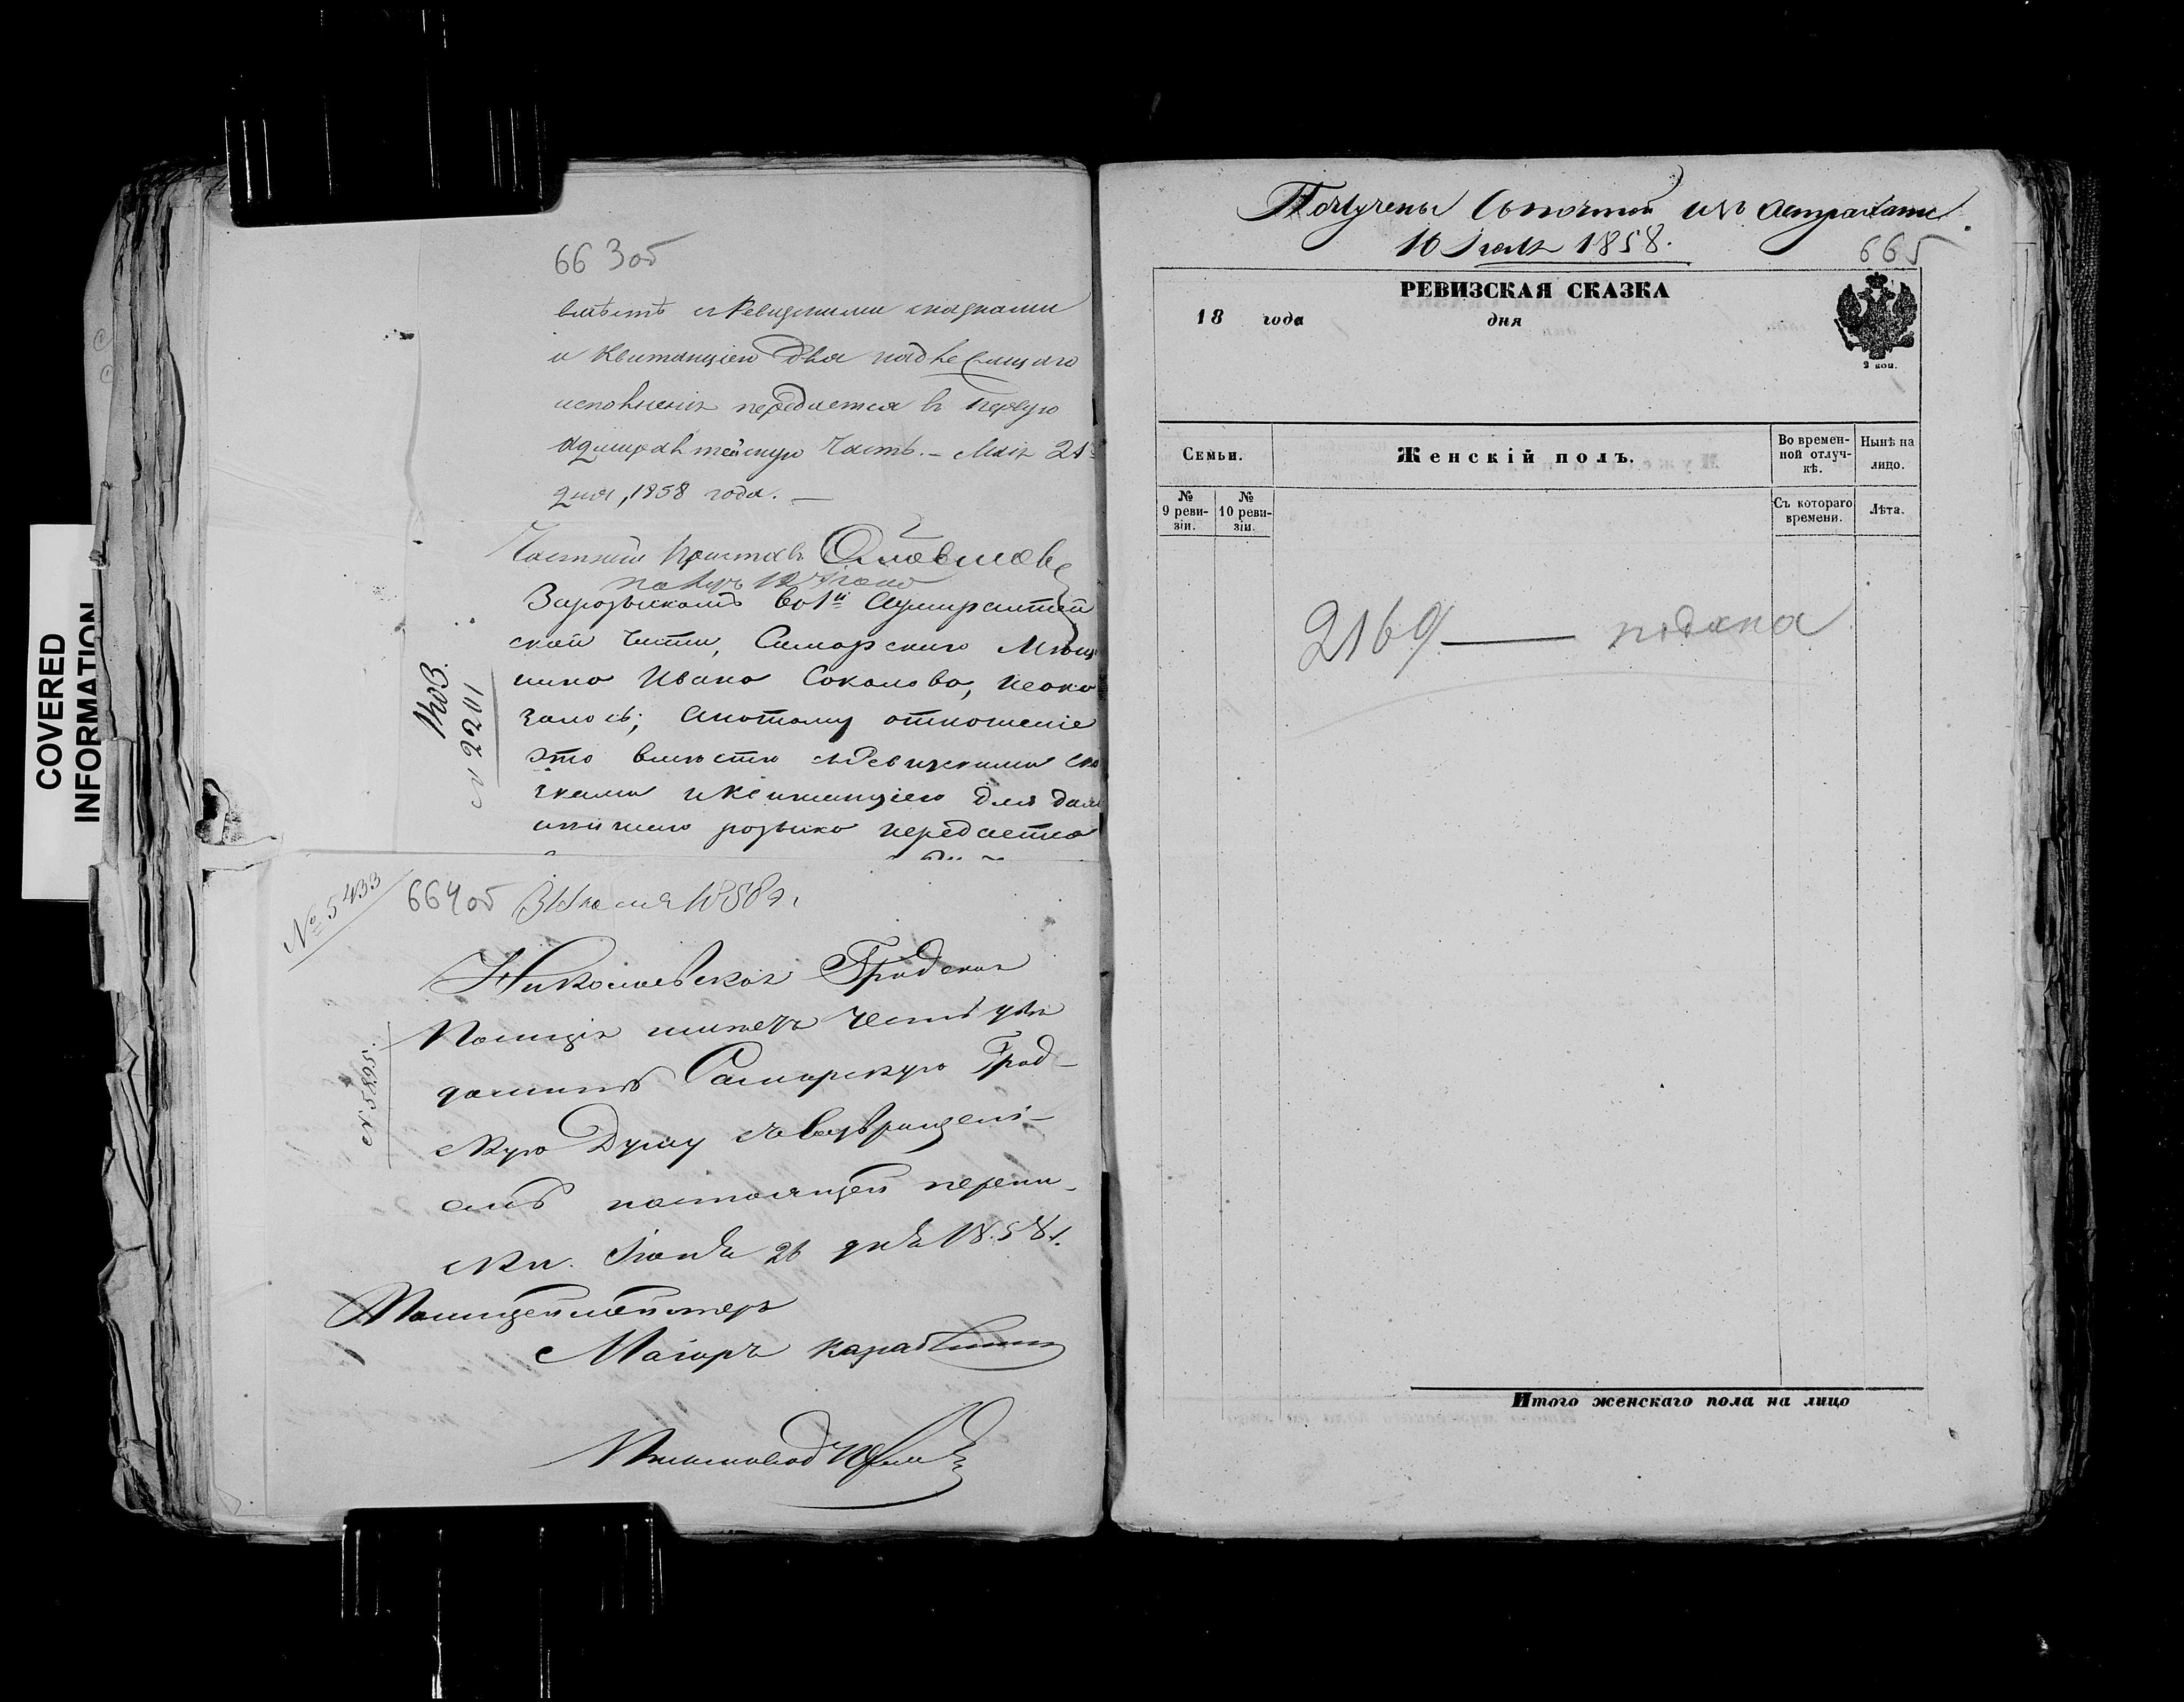 COVERED
INFORMATION
663 об
вмѣстѣ съ Ревизскими сказками
и Квитанціею для надлежащаго
исполненія передается въ Первую
Адмиралтейскую Часть. – Мая 21
дня, 1858 года. –
Частный Приставъ
За розыскомъ во 1й Адмиралтей
ской части, Самарскаго Мѣща
нина Ивана Соколова, неока
залось; а потому отношеніе
это вмѣстѣ съ Ревизскими ска
зками и Квитанціею для даль
нѣйшаго розыска передается
1403.
№ 2201
№ 5433
664 об
31 Іюля 1858 г.
№ 5895.
Николаевская Градская
Полиція имѣетъ честь увѣ
домить Самарскую Град-
скую Думу съ возвращені-
емъ настоящей перепи-
ски. Іюня 26 дня 1858 г.
Полицеймейстеръ
Маіоръ
Получены съ почтой изъ Астрахани
10 Іюля 1858.
665
РЕВИЗСКАЯ СКАЗКА
18 года дня
2 коп.
Семьи.
Женскій полъ.
Во времен-
ной отлуч-
кѣ.
Нынѣ на
лицо.
№
9 реви-
зіи.
№
10 реви-
зіи.
Съ котораго
времени.
Лѣта.
2169 — подана
Итого женскаго пола на лицо